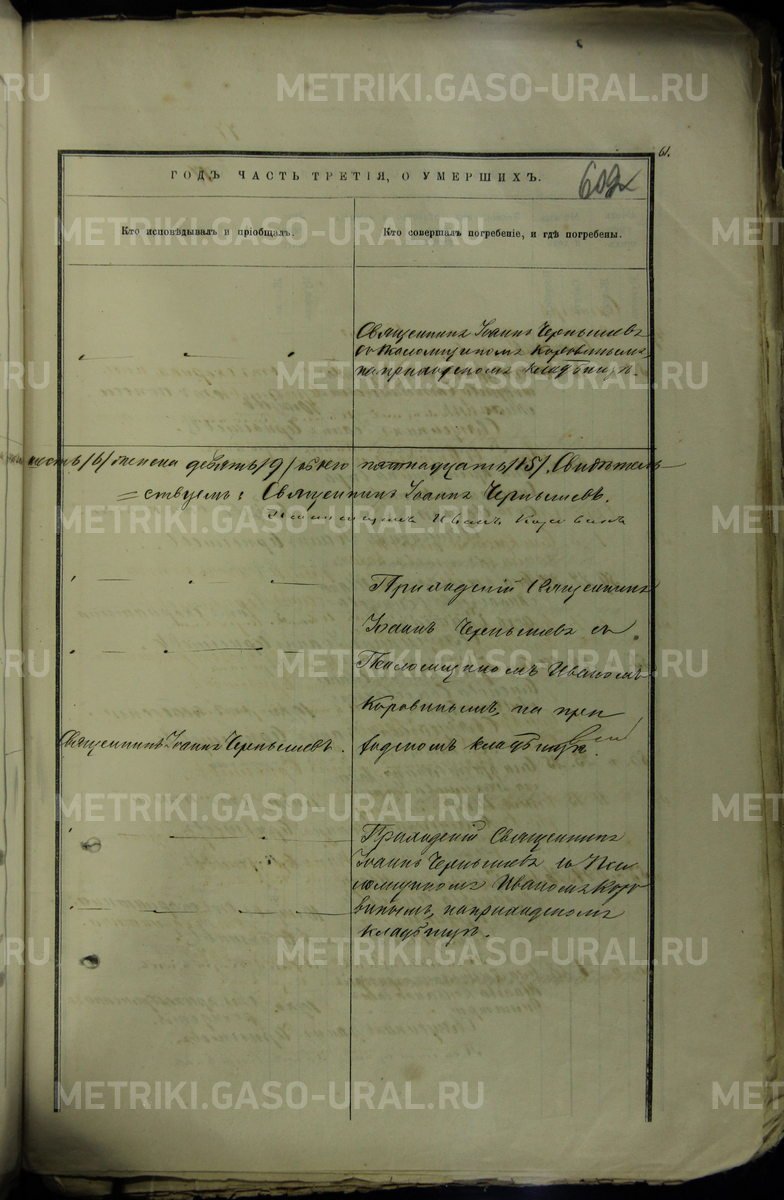 METRIKI.GASO-URAL.RU
61.
ГОДЪ ЧАСТЬ ТРЕТІЯ, О УМЕРШИХЪ.
602
Кто исповѣдывалъ и пріобщалъ.
Кто совершалъ погребеніе, и гдѣ погребены.
Священникъ Іоаннъ Чернышевъ
съ Псаломщикомъ Коровинымъ,
на приходскомъ кладбищѣ.
шесть /6/ женска девять /9/ обоего пятнадцать /15/. Свидѣтель-
=ствуемъ: Священникъ Іоаннъ Чернышевъ.
Псаломщикъ Иванъ Коровинъ
Приходскій Священникъ
Іоаннъ Чернышевъ съ
Псаломщикомъ Иваномъ
Коровинымъ, на при
Священникъ Іоаннъ Чернышевъ.
ходскомъ кладбищѣ.
Приходскій Священникъ
Іоаннъ Чернышевъ съ Пса
ломщикомъ Иваномъ Коро
винымъ, на приходскомъ
кладбищѣ.